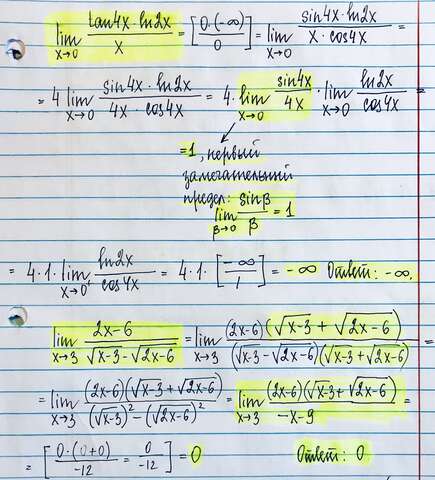 lim x→0 tan4x·ln2x / x = [0·(-∞) / 0] = lim x→0 sin4x·ln2x / x·cos4x =
= 4 lim x→0 sin4x·ln2x / 4x·cos4x = 4·lim x→0 sin4x / 4x · lim x→0 ln2x / cos4x =
=1, первый
замечательный
предел:
lim β→0 sinβ / β = 1
= 4·1·lim x→0 ln2x / cos4x = 4·1·[-∞ / 1] = -∞ Ответ: -∞.
lim x→3 2x-6 / √x-3 - √2x-6 = lim x→3 (2x-6)(√x-3 + √2x-6) / (√x-3 - √2x-6)(√x-3 + √2x-6) =
= lim x→3 (2x-6)(√x-3 + √2x-6) / (√x-3)² - (√2x-6)² = lim x→3 (2x-6)(√x-3 + √2x-6) / -x-9 =
= [0·(0+0) / -12 = 0 / -12] = 0 Ответ: 0